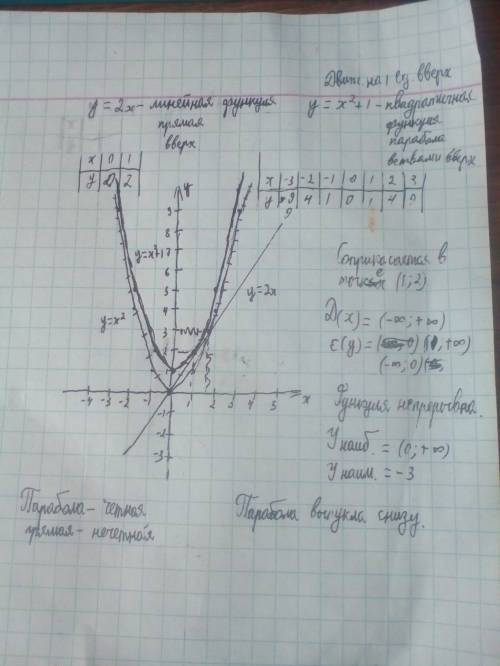 Движ на 1 ед вверх
y = 2x - линейная функция
прямая
вверх
y = x²+1 - квадратичная
функция
парабола
ветвями вверх
x | 0 | 1
y | 0 | 2
x | -3 | -2 | -1 | 0 | 1 | 2 | 3
y | 9 | 4 | 1 | 0 | 1 | 4 | 9
y
9
8
7
6
5
4
3
2
1
y=x²+1
y=x²
y=2x
-4 -3 -2 -1 1 2 3 4 5 x
-1
-2
-3
Соприкасается в
точке (1;2)
D(x) = (-∞; +∞)
E(y) = (1, +∞)
(-∞; 0)
Функция непрерывна.
y наиб. = (0; +∞)
y наим. = -3
Парабола - четная
прямая - нечетная
Парабола выпукла снизу.